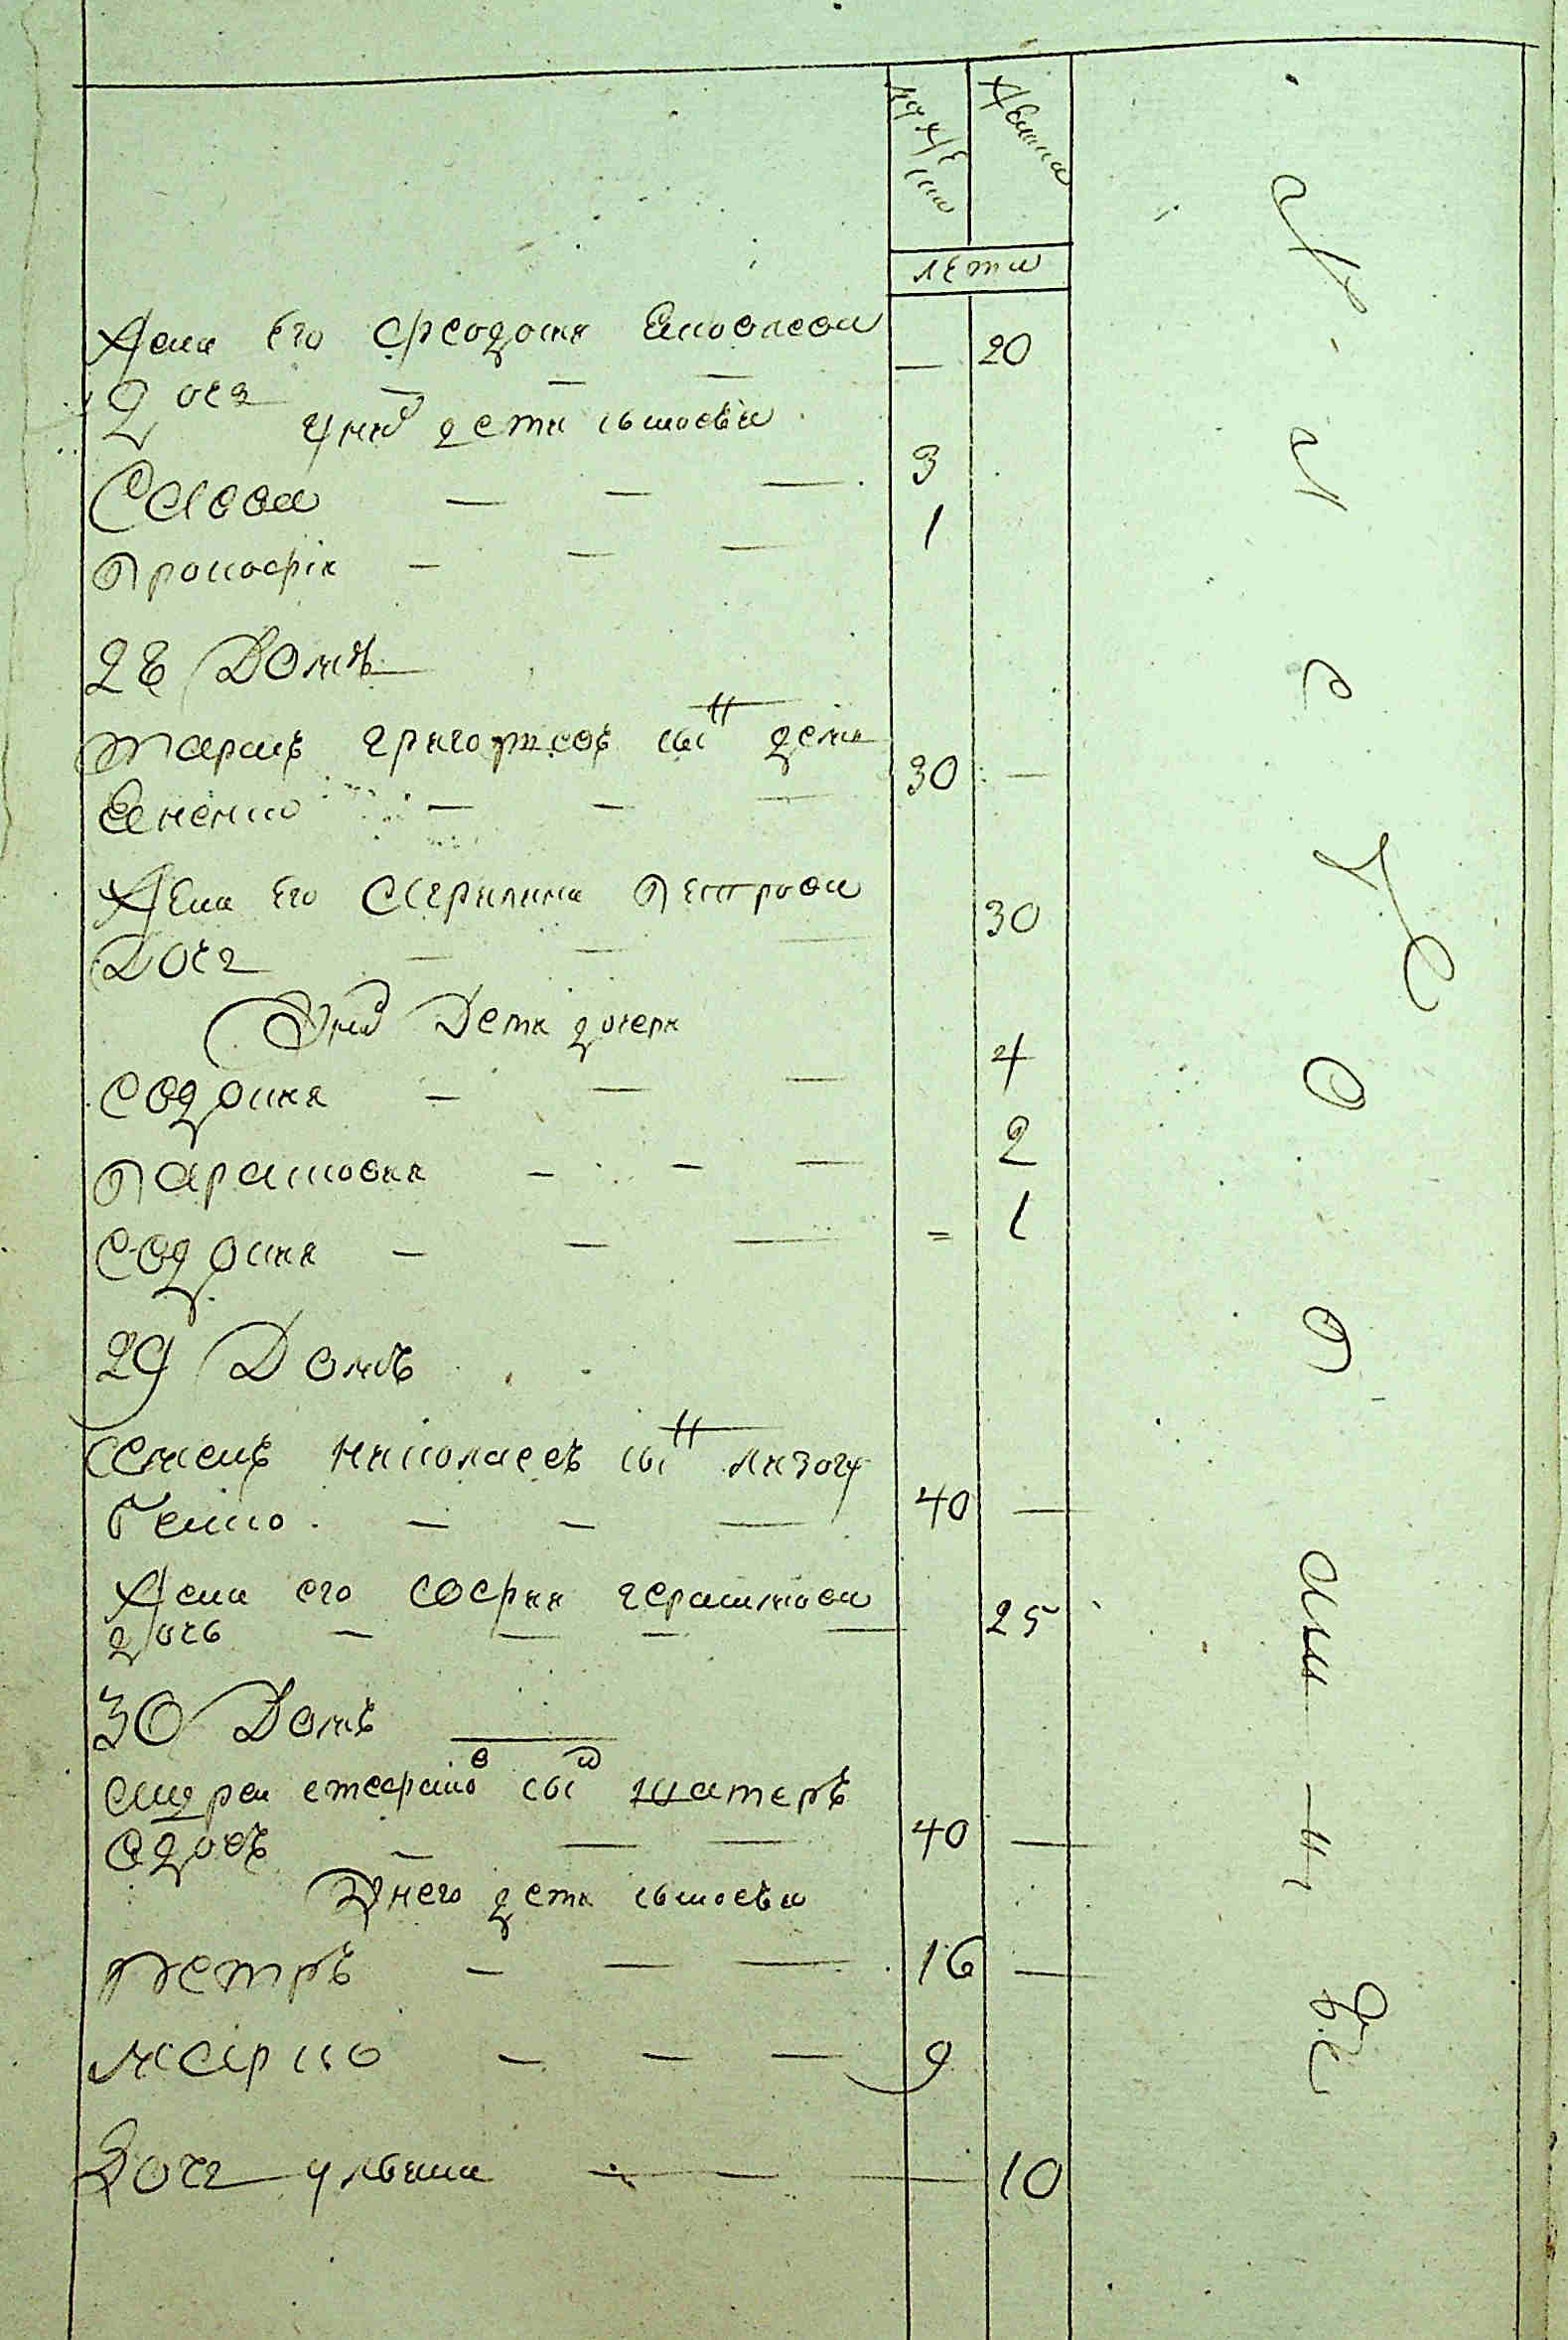 мужеска
женска
лета
жена его феодосия яковлева 20
дочь
у них дети сыновья
савва 3
прокофiи 1
28 домъ
тарасъ григориевъ сынъ деми
евненко 30
жена его агрипина петрова
дочь 30
у них дети дочери
евдокия 4
парасковия 2
евдокия 1
29 домъ
семенъ николаевъ сынъ лизогу
бенко 40
жена его софия герасимова
дочь 25
30 домъ
андреи стефановъ сынъ
вдовъ 40
у него дети сыновья
петръ 16
марко 9
дочь улияна 10